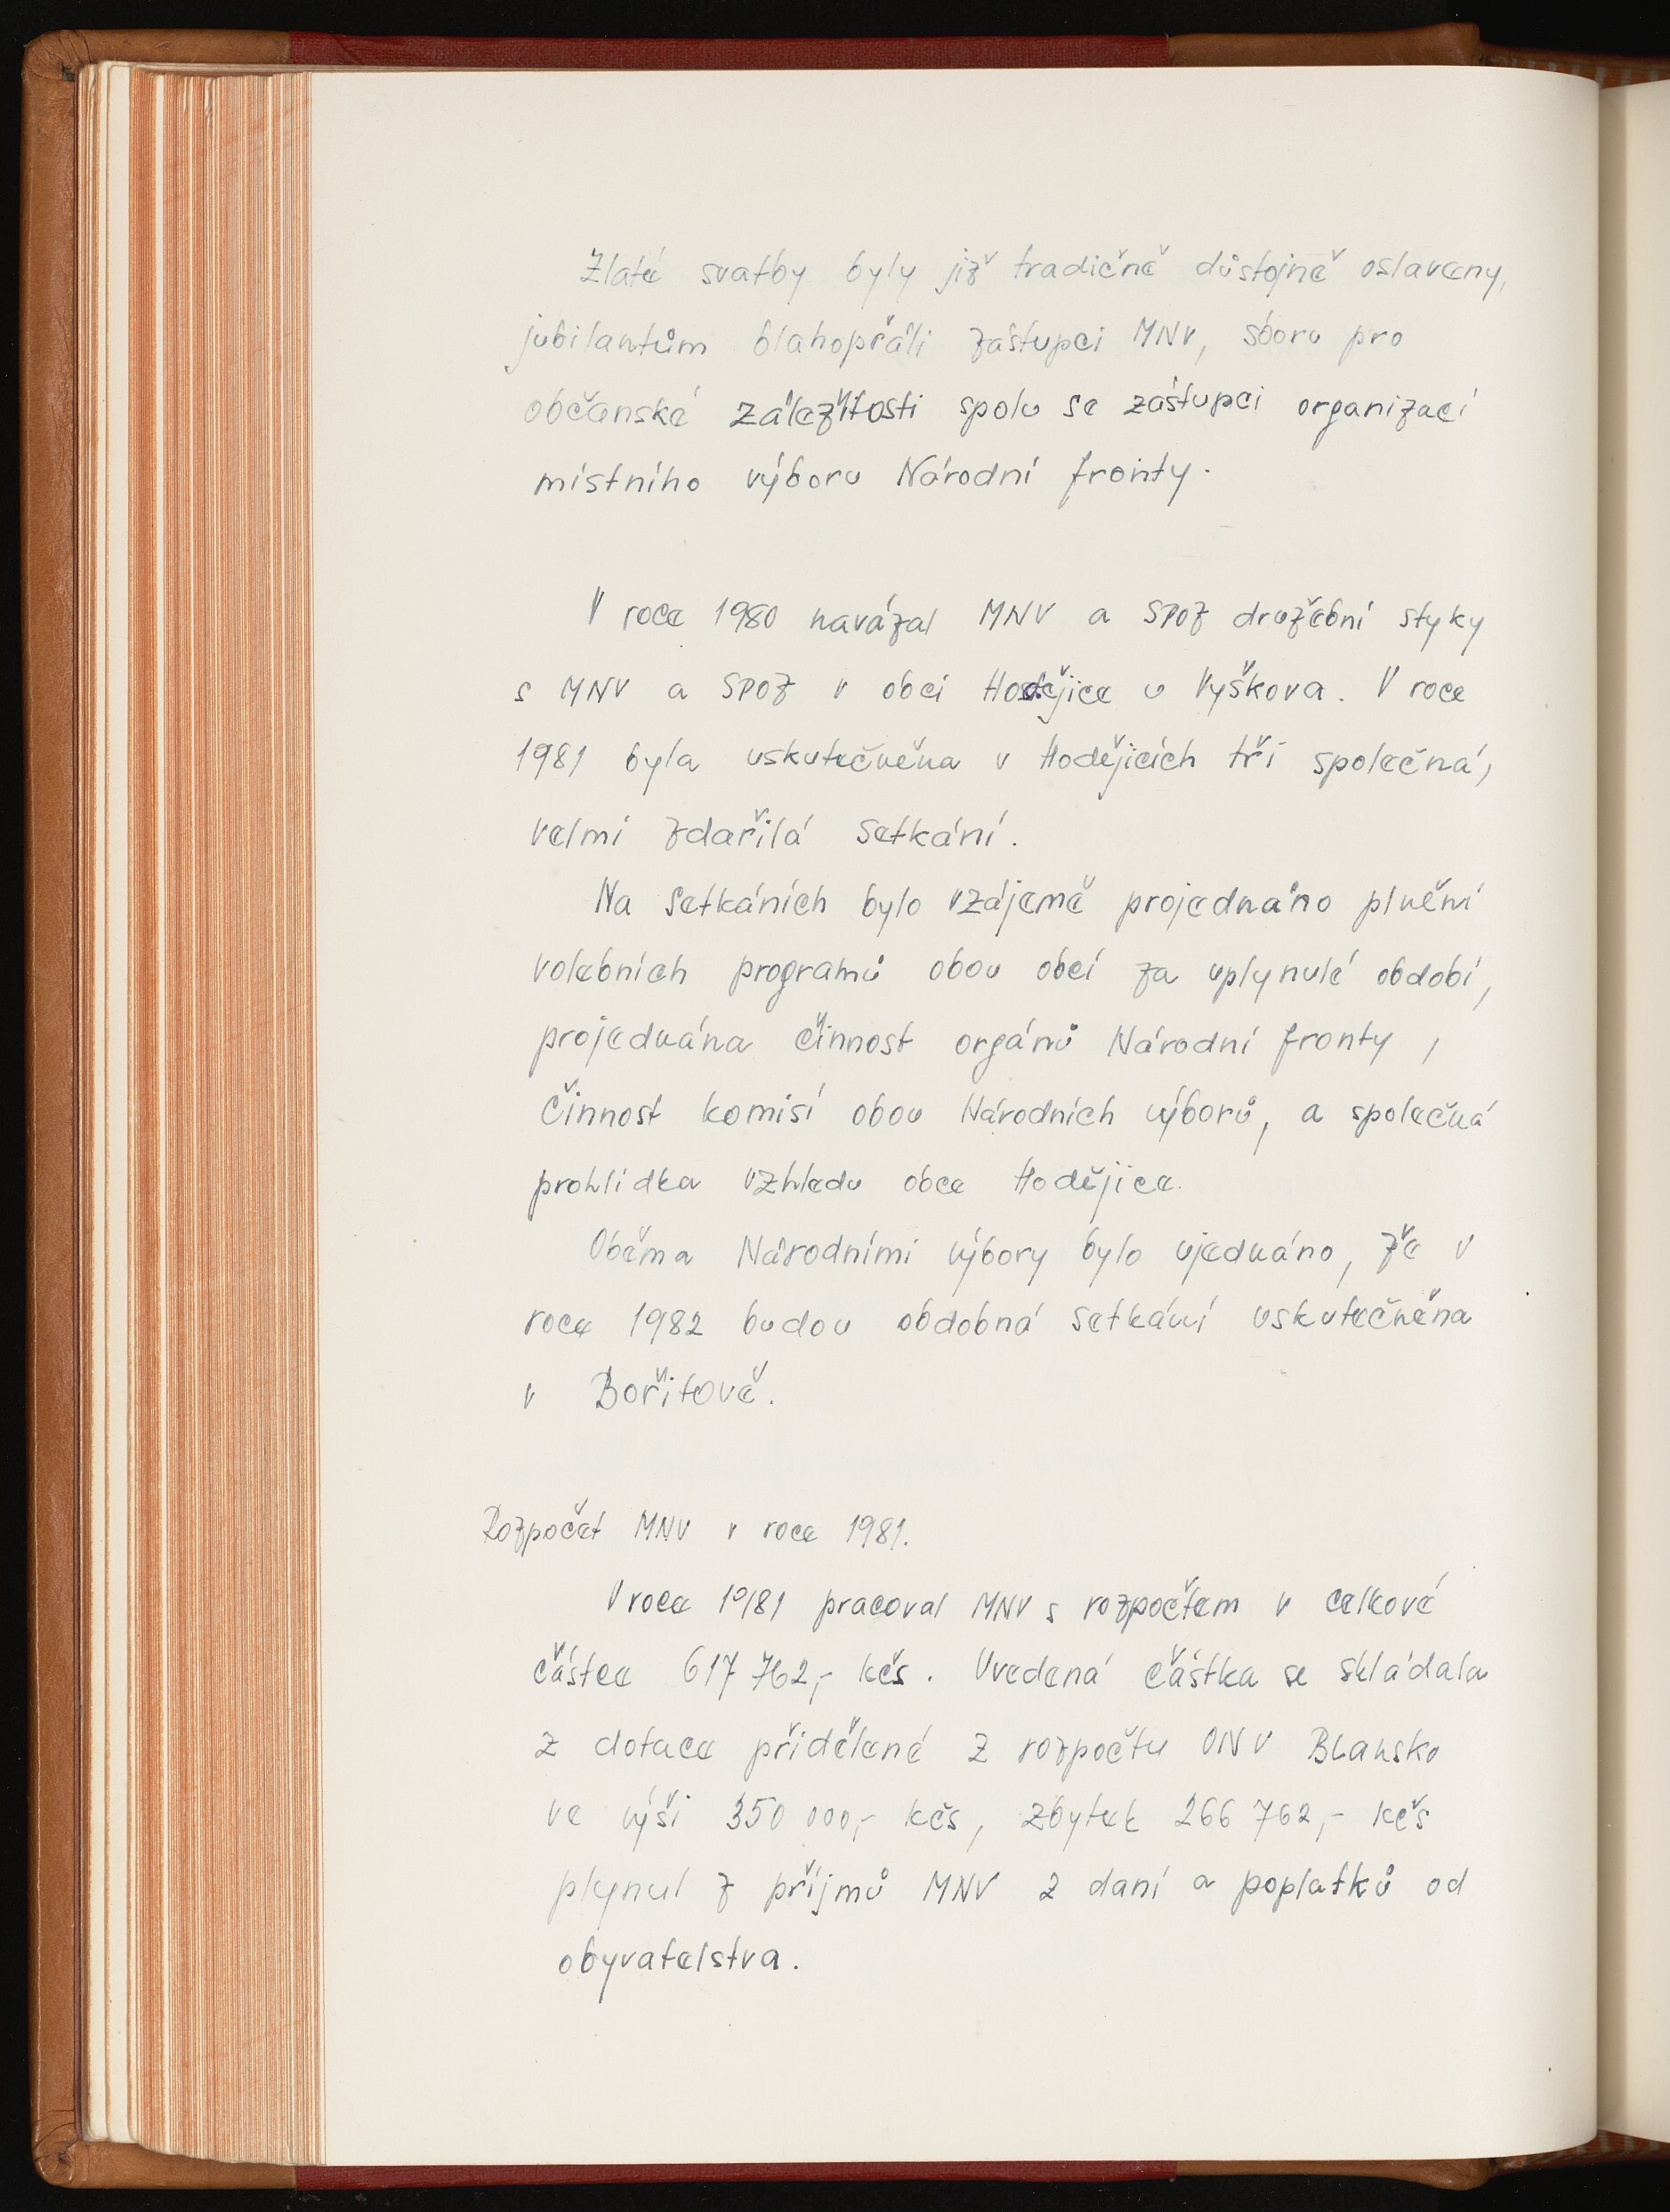 Zlaté svatby byly již tradičně důstojně oslaveny,
jubilantům blahopřáli zástupci MNV, sboru pro
občanské záležitosti spolu se zástupci organizací
místního výboru Národní fronty.
V roce 1980 navázal MNV a SPOZ družební styky
s MNV a SPOZ v obci Hodějice u Vyškova. V roce
1981 byla uskutečněna v Hodějicích tři společná,
velmi zdařilá setkání.
Na setkáních bylo vzájemě projednáno plnění
volebních programů obou obcí za uplynulé období,
projednána činnost orgánů Národní fronty,
činnost komisí obou Národních výborů, a společná
prohlídka vzhledu obce Hodějice.
Oběma Národními výbory bylo ujednáno, že v
roce 1982 budou obdobná setkání uskutečněna
v Bořitově.
Rozpočet MNV v roce 1981.
V roce 1981 pracoval MNV s rozpočtem v celkové
částce 617 762,- kčs. Uvedená částka se skládala
z dotace přidělené z rozpočtu ONV Blansko
ve výši 350 000,- kčs, zbytek 266 762,- kčs
plynul z příjmů MNV z daní a poplatků od
obyvatelstva.